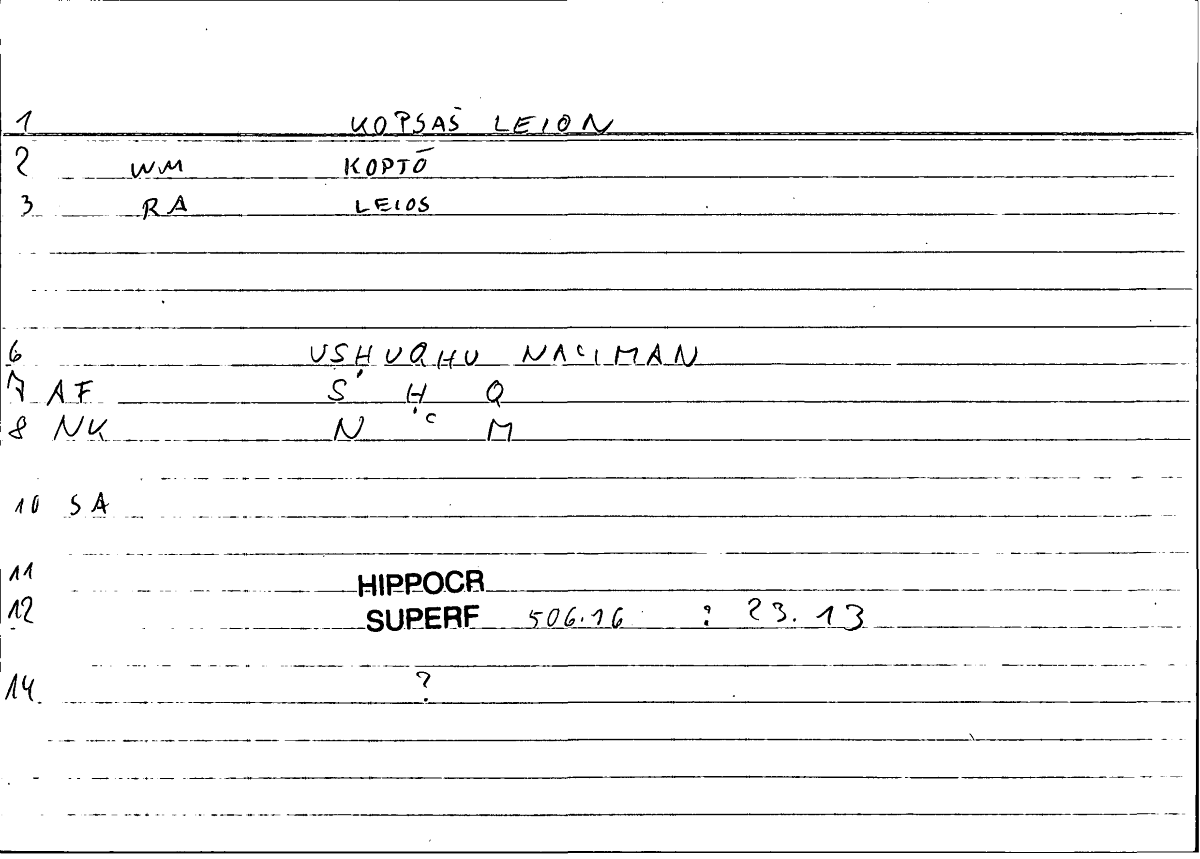 1 KOPSAS̄ LEION
2 WM KOPTŌ
3 RA LEIOS
6 USḤUQHU NAᶜIMAN
7 AF S Ḥ Q
8 NK N ᶜ M
10 SA
11 HIPPOCR
12 SUPERF 506.16 : 23.13
14 ?